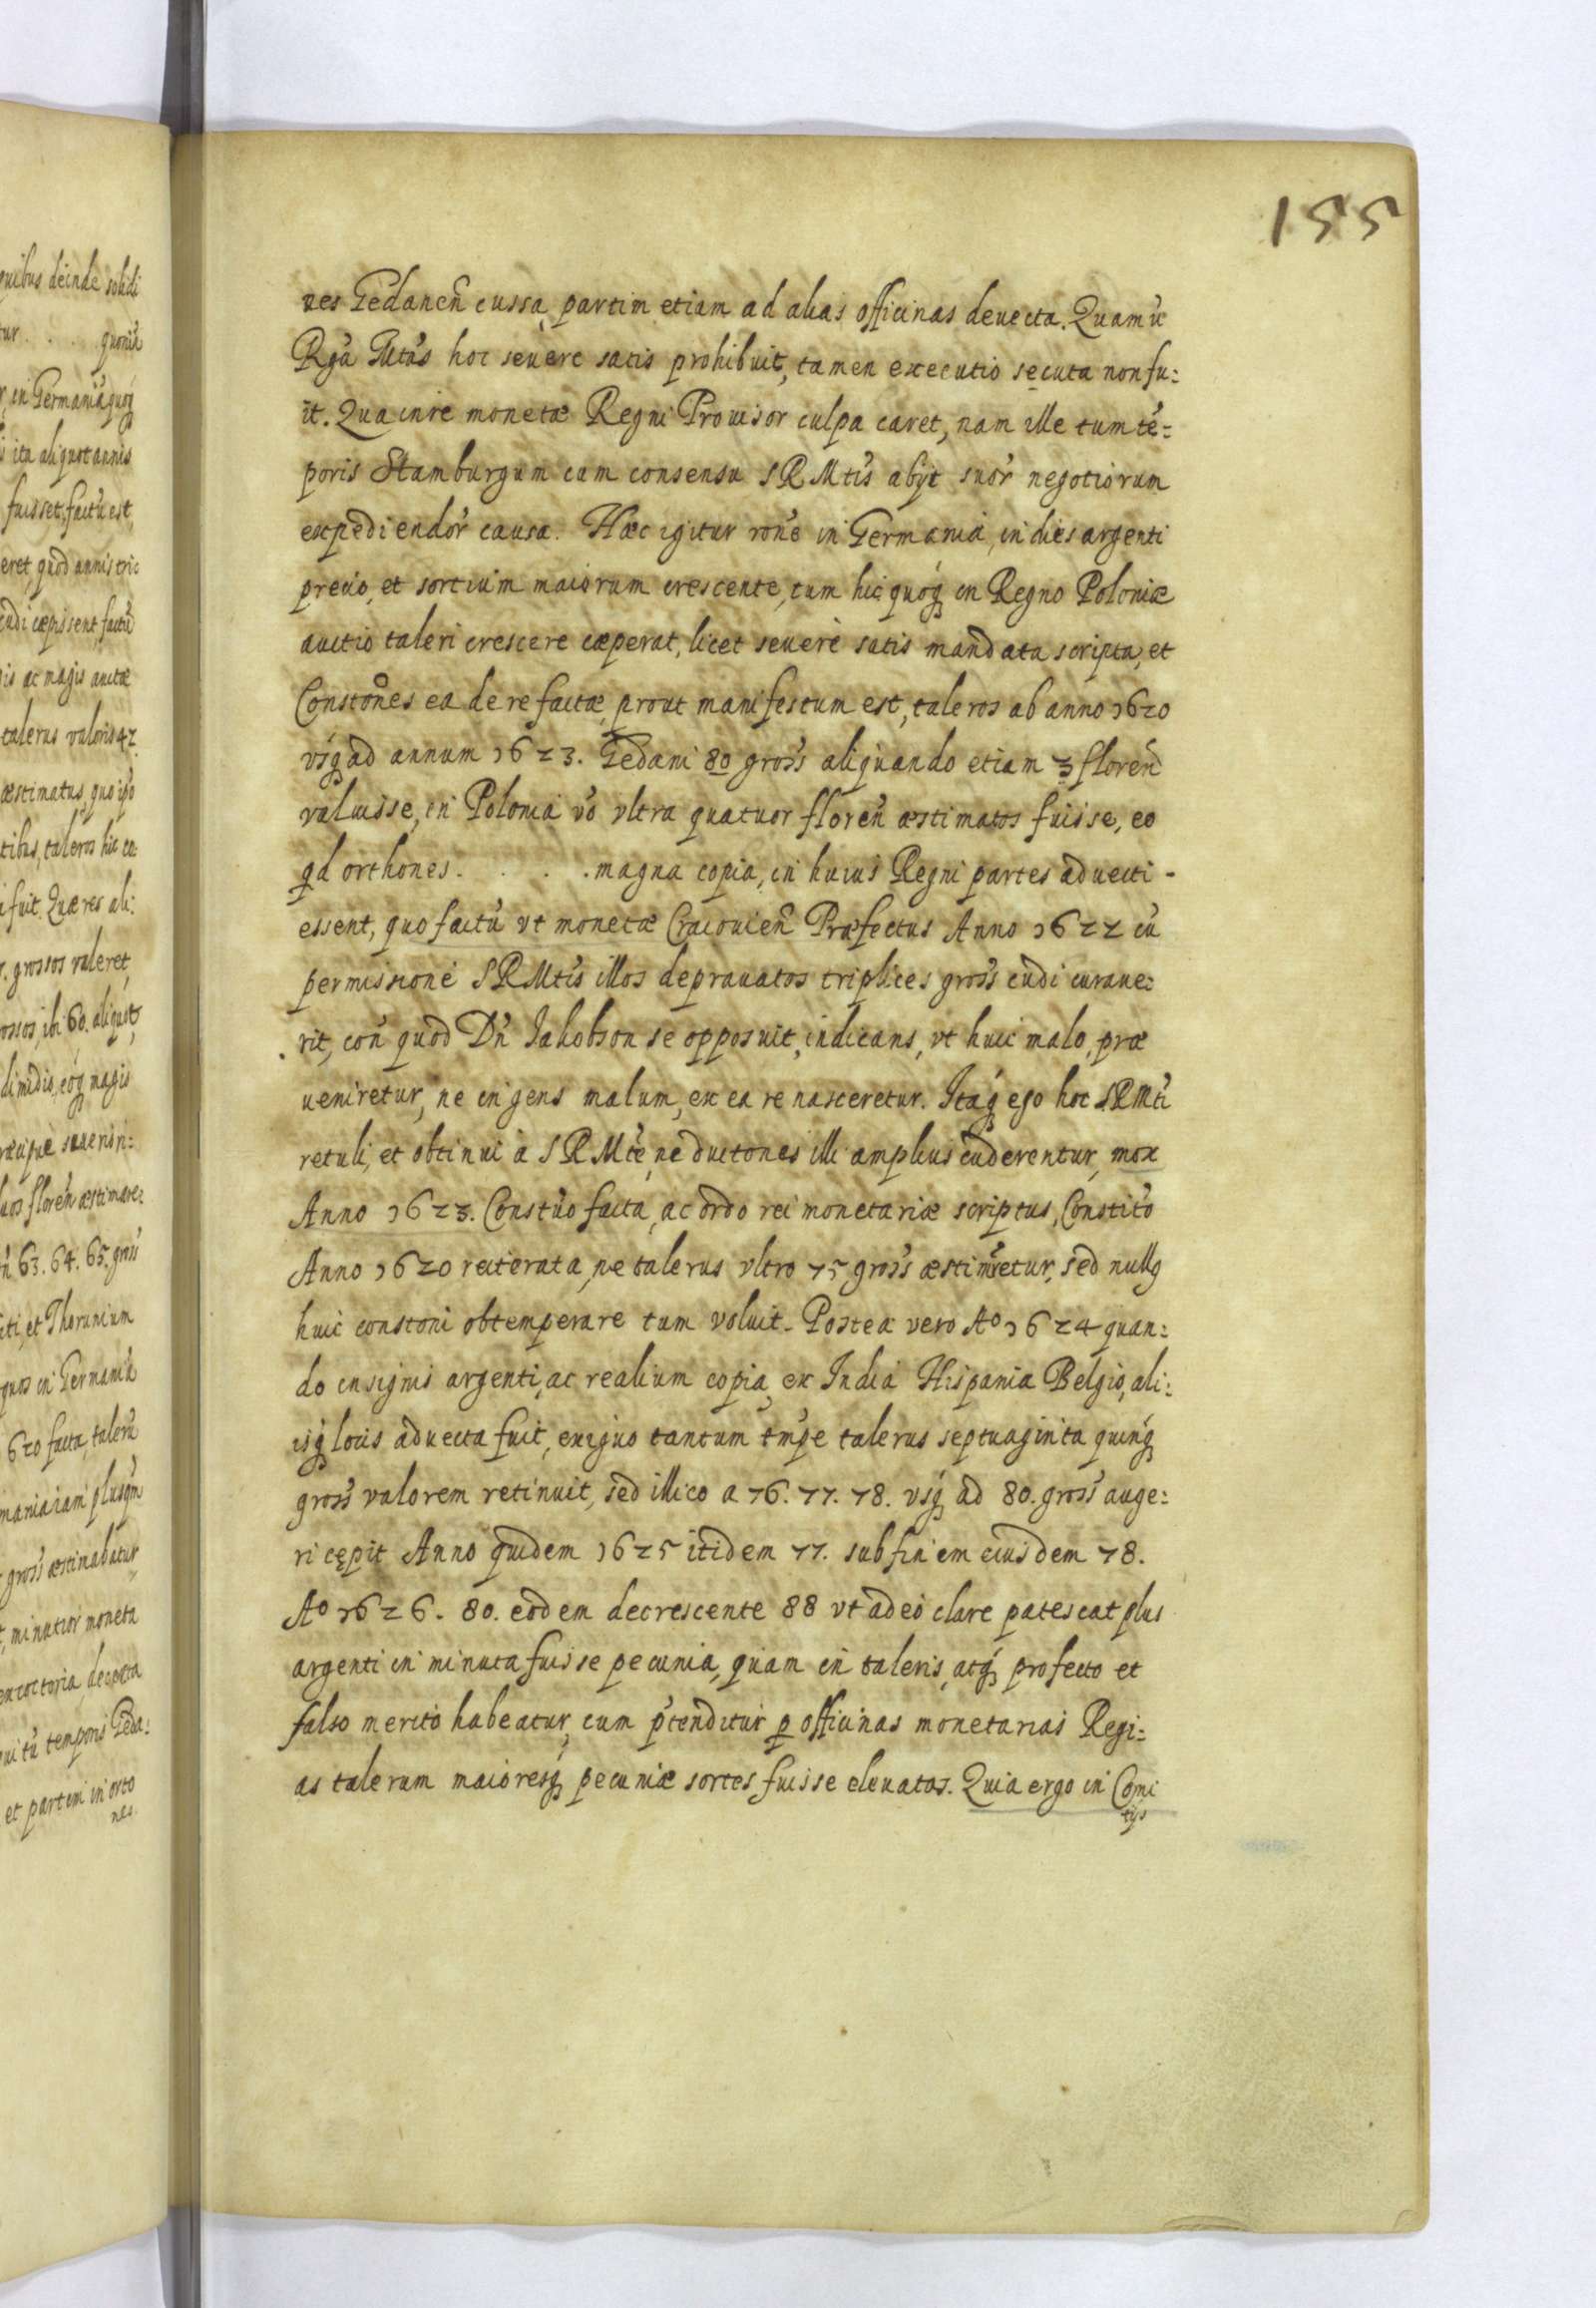 155
nes Gedanen̄ cussa, partim etiam ad alias officinas deuecta. Quamũ
Rga Mtas hoc seuere satis prohibuit, tamen executio secuta non fu:
it. Qua in re monetæ Regni Prouisor culpa caret, nam ille tum tē:
poris Hamburgum cum consensu SRMtis abijt suor̃ negotiorum
expediendor̃ causa. Hæc igitur rone in Germania, in dies argenti
precio, et sortium maiorum crescente, tum hic quoq; in Regno Poloniæ
auctio taleri crescere cæperat, licet seuerè satis mandata scripta, et
Constones ea de re factæ, prout manifestum est, taleros ab anno 1620
vsq; ad annum 1623. Gedani 80 gross aliquando etiam 3 floren̄
valuisse, in Polonia vo vltra quatuor floren̄ æstimatos fuisse, eo
qd orthones. . . . . magna copia, in huius Regni partes aduecti -
essent, quo factũ vt monetæ Cracouien̄ Præfectus Anno 1622 cũ
permissione SRMtis illos deprauatos triplices gross cudi curaue:
rit, con̄ quod Dn̄ Jakobson se opposuit, indicans, vt huic malo, præ
ueniretur, ne ingens malum, ex ea re nasceretur. Itaq; ego hoc SRMti
retuli, et obtinui à SRMte, ne ductones illi amplius cuderentur, mox
Anno 1623. Constuo facta, ac ordo rei monetariæ scriptus, Constito
Anno 1620 reiterata, ne talerus vltro 75 gross æstimaretur, sed nullq
huic constoni obtemperare tum voluit. Postea vero Ao 1624 quan:
do insignis argenti, ac realium copia, ex India Hispania Belgio, ali:
isq; locis aduecta fuit, exiguo tantum tmpe talerus septuaginta quinq;
gross valorem retinuit, sed illico a 76. 77. 78. vsq; ad 80. gross auge:
ri cępit Anno quidem 1625 itidem 77. sub finem eiusdem 78.
Ao 1626. 80. eodem decrescente 88 vt adeò clare patescat plus
argenti in minuta fuisse pecunia, quam in taleris, atq; profecto et
falso merito habeatur, cum p̃tenditur p officinas monetarias Regi:
as talerum maioresq; pecuniæ sortes fuisse eleuatas. Quia ergo in Comi
tijs